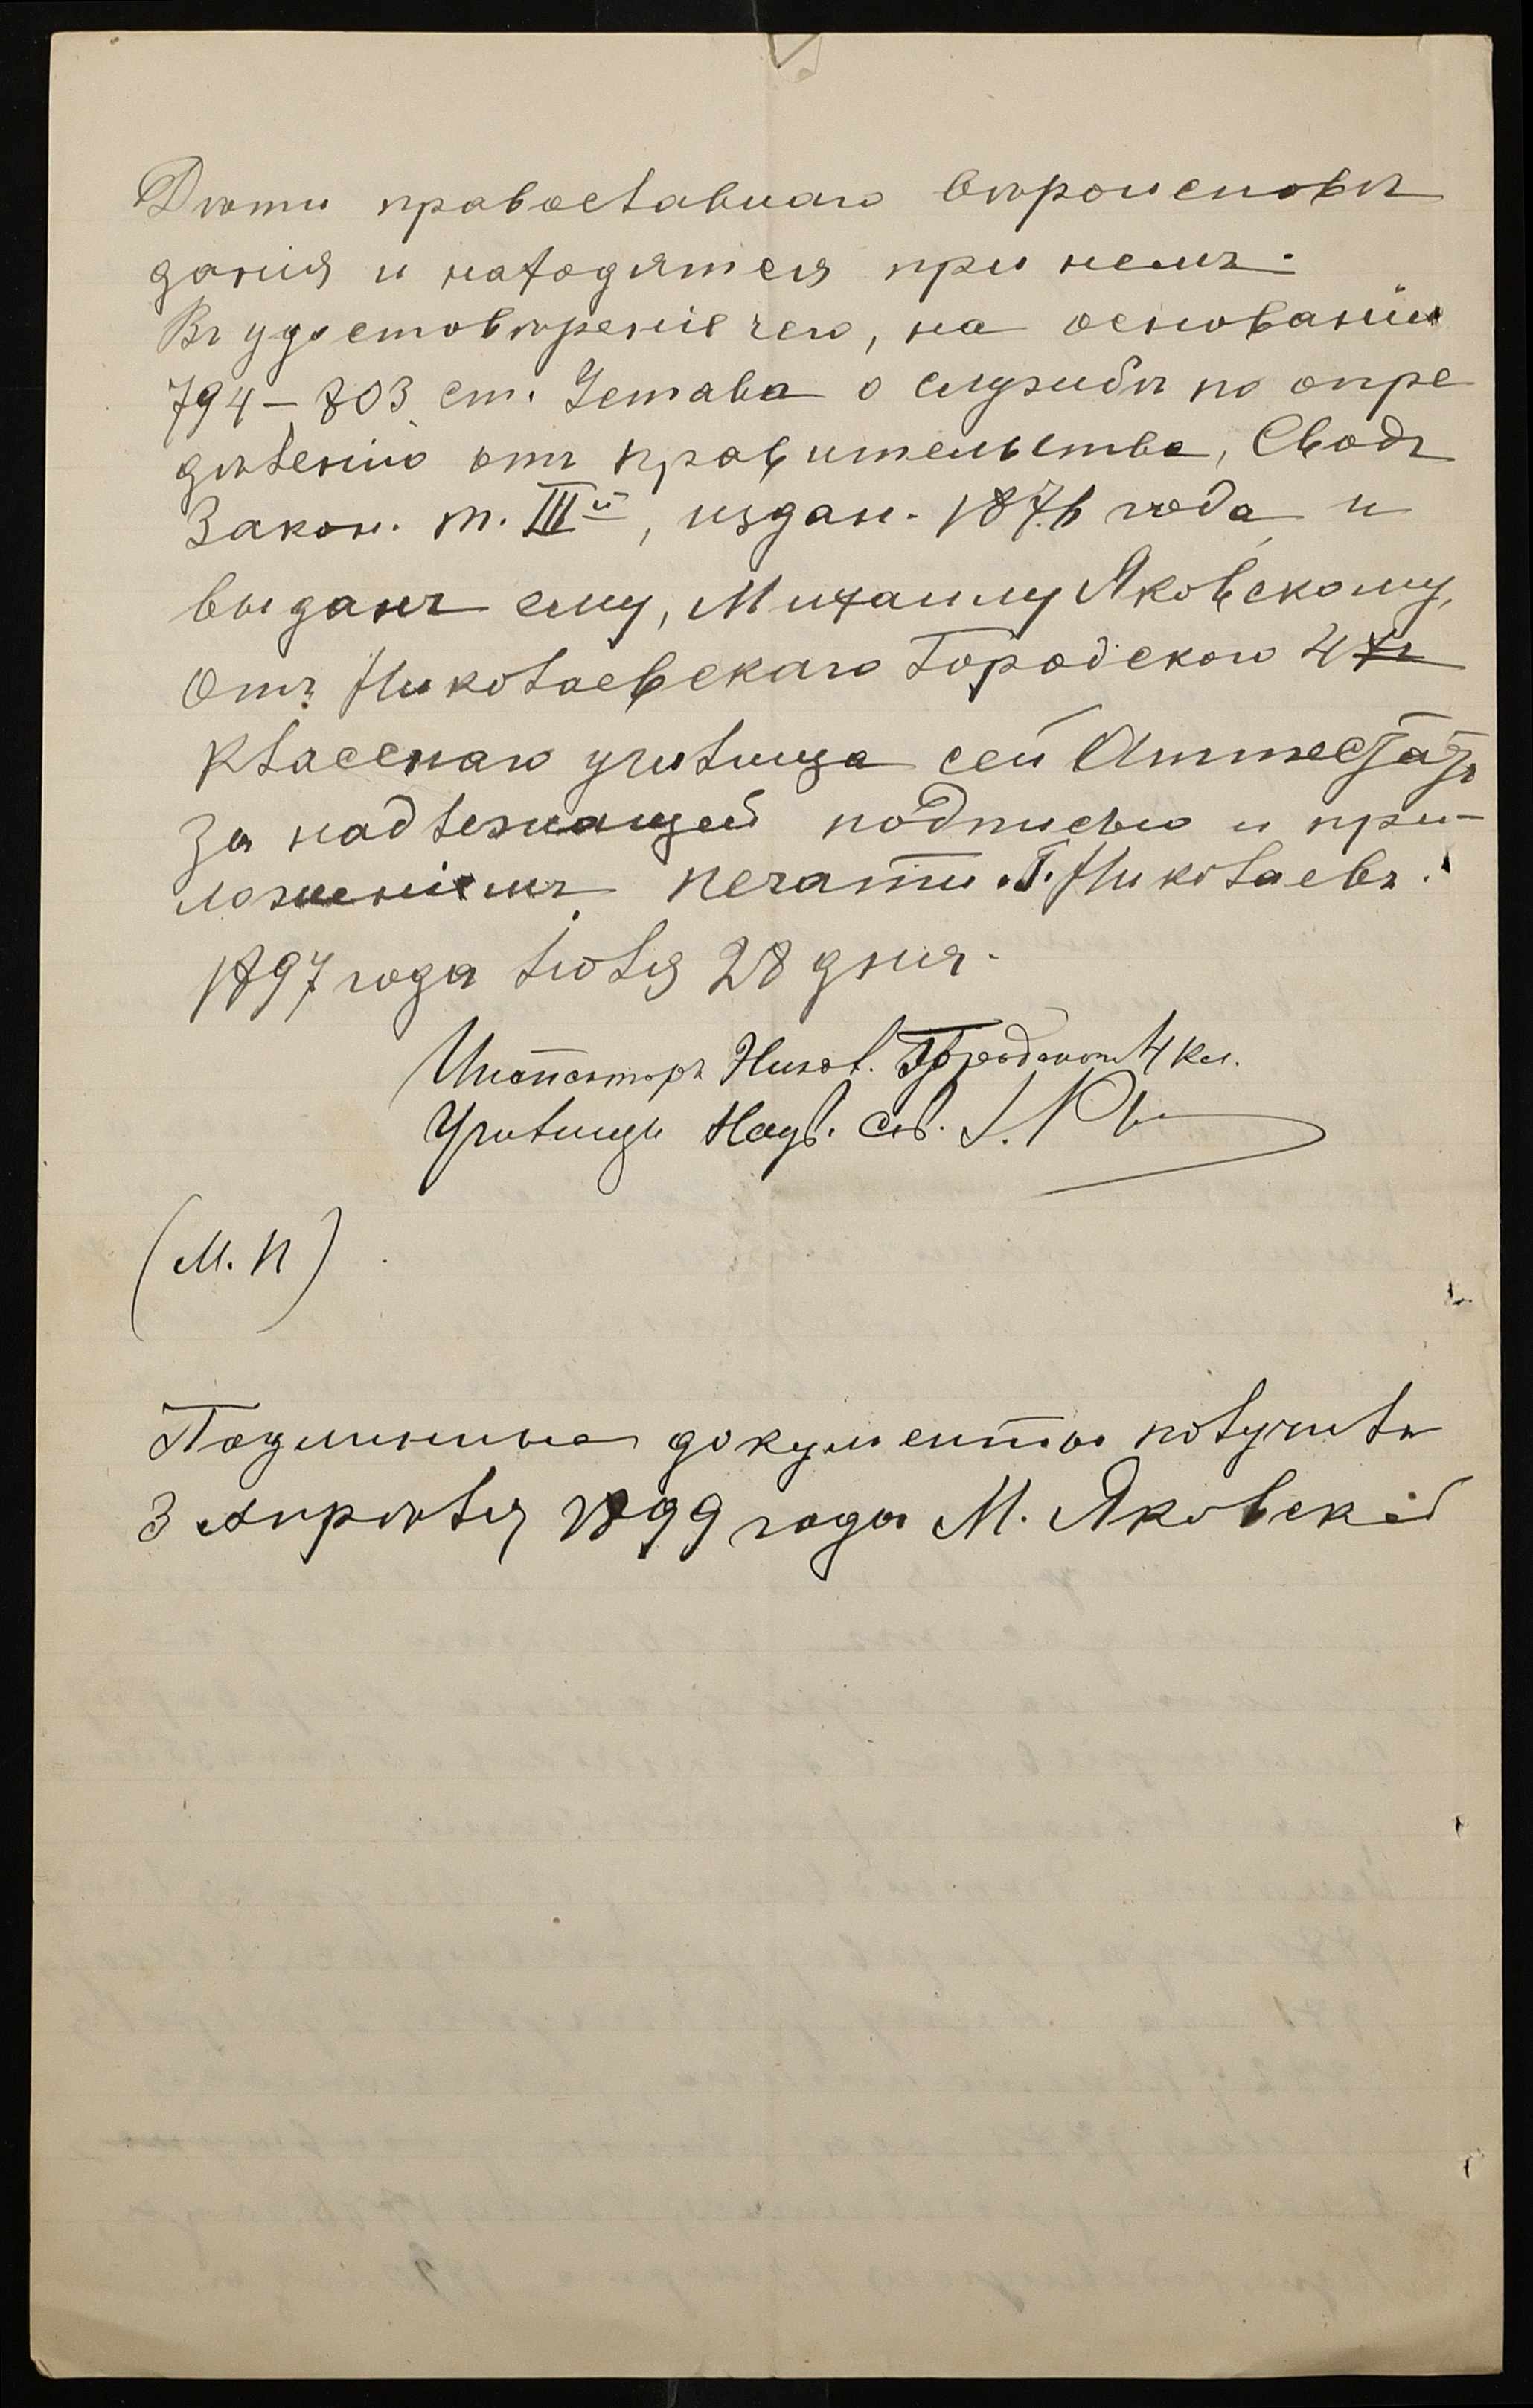 Дѣти православнаго вѣроисповѣ
данія и находятся при немъ.
Въ удостовѣреніе чего, на основаніи
794 – 803 ст. Устава о службѣ по опре
дѣленію отъ правительства, Сводъ
Закон. т. III й, издан. 1876 года и
выданъ ему, Михаилу Яковскому,
отъ Николаевскаго Городского 4 хъ
класснаго училища сей Аттестатъ
за надлежащей подписью и при-
ложеніемъ печати. Г. Николаевъ.
1897 года іюля 28 дня.
Инспекторъ Никол. Городского 4 кл.
Училища Надв. Сов.
(М. П)
Подлинные документы получилъ
3 Апрѣля 1899 года М. Яковскій